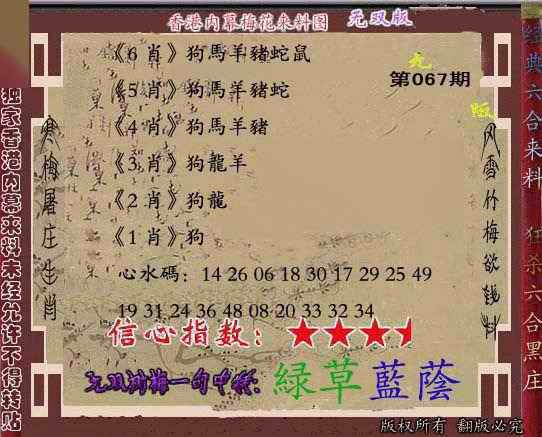 香港内幕梅花来料图 无双版
《6 肖》狗馬羊豬蛇鼠
第067期
《5 肖》狗馬羊豬蛇
《4 肖》狗馬羊豬
《3 肖》狗龍羊
《2 肖》狗龍
《1 肖》狗
心水碼：14 26 06 18 30 17 29 25 49
19 31 24 36 48 08 20 33 32 34
信心指数：★★★
一句中特：綠草藍蔭
版权所有 翻版必究
独家香港内幕来料未经允许不得转贴
寒梅屠庄生肖
风雪竹梅欲钱料
经典六合来料 狂杀六合黑庄